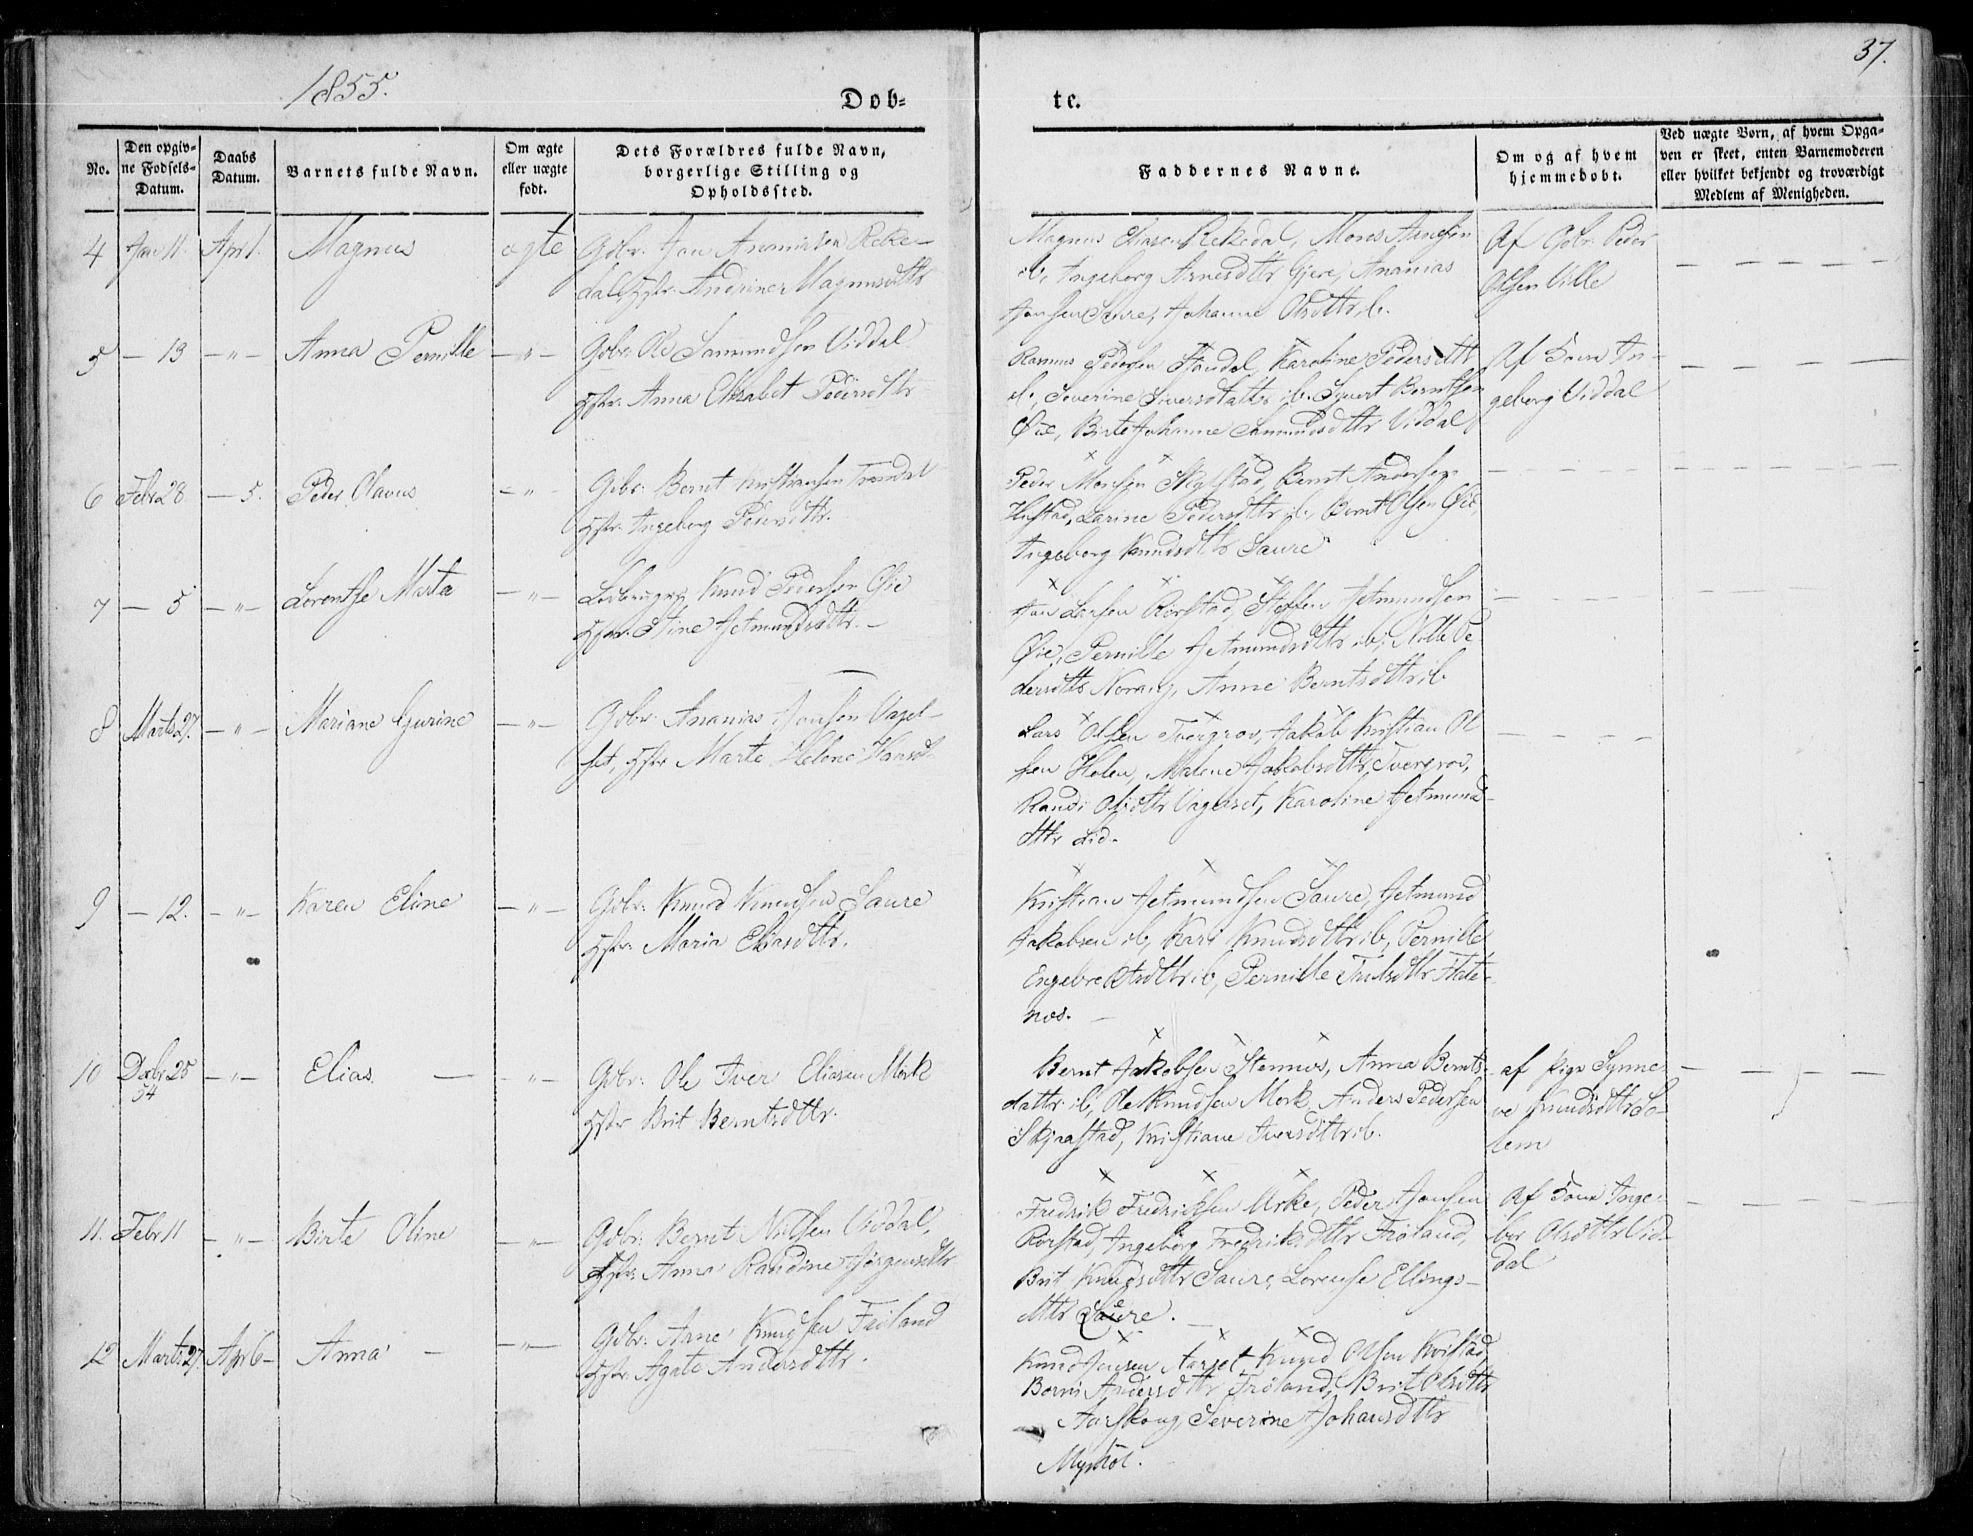 37.
1855.
Dob=
te.
No.
Den opgiv-
ne Fødsels-
Datum.
Daabs
Datum.
Barnets fulde Navn.
Om ægte
eller uægte
født.
Dets Forældres fulde Navn,
borgerlige Stilling og
Opholdssted.
Faddernes Navne.
Om og af hvem
hjemmedøbt.
Ved uægte Børn, af hvem Opga-
ven er skeet, enten Barnemoderen
eller hvilket bekjendt og troværdigt
Medlem af Menigheden.
4 Jan 11. Apr 1. Magnus ægte Gdbr. Jon Ananiassen Reke-
dal Hstr. Andrine Magnusdttr
Magnus Eliasen Rekedal, Mons Arnesen
ib, Ingeborg Arnesdttr Gjere, Ananias
Jonsen Saure, Johanne Olsdttr ib.
Af Gdbr. Peder
Olsen Ville
5 – 13 – " – Anna Pernille – " – Gdbr. Ole Samundsen Viddal
Hstr. Anna Elisabet Pedersdttr
Rasmus Pedersen Standal, Karoline Pedersdttr
ib., Severine Siversdatter ib. Syvert Berntsen
Øie, Birte Johanne Samundsdttr Viddal
Af Kone In-
geborg Viddal
6 Febr 28 – 5. Peder Olavus – " – Gdbr. Bernt Kristiansen Trandal
Hstr. Ingeborg Pedersdttr.
Peder Monsen Skylstad, Bernt Andersen
Hustad, Larine Pedersdttr ib, Bernt Olsen Øie,
Ingeborg Knudsdttr Saure
7 – 5 – " – Lorentse Marta – " – Knud Pedersen Øie
Hstr. Stine Jetmundsdttr. –
Jon Larsen Rørstad, Steffen Jetmundsen
Øie, Pernille Jetmundsdttr ib, Nille Pe
dersdttr Norang, Anne Berntsdttr ib
8 Marts 27. – " – Mariane Gurine – " – Gdbr. Ananias Jonsen Vagel-
set, Hstr Marte Helene Hansd.
Lars Olsen Tvergrov, Jakob Kristian Ol
sen Holen, Malene Jakobsdttr Tvergrov,
Randi Olsdttr Vagelset, Karoline Jetmund-
dttr Lid.
9 – 12. – " – Karen Eline – " – Gdbr. Knud Knudsen Saure
Hstr. Maria Eliasdttr.
Kristian Jetmundsen Saure, Jetmund
Jakobsen ib, Kari Knudsdttr ib, Pernille
Engebretsdttr ib, Pernille
nos.
10 Decbr 25 – " – Elias. – – " – Gdbr: Ole Iver Eliasen Mork
54
Hstr Brit Berntsdttr.
Bernt Jakobsen Stennes, Anna Bernts-
dattr ib, Ole Knudsen Mork, Anders Pedersen
Skjaastad, Kristiane Iversdttr ib.
af Pige Synne-
ve Knudsdttr So-
lem
11. Febr 11 – " – Birte Oline – " – Gdbr. Bernt Nilsen Viddal,
Hstr. Anna Randine Jørgensdttr
Fredrik Fredriksen Urke, Peder Jonsen
Rørstad, Ingeborg Fredriksdttr Frøland,
Brit Knudsdttr Saure, Lorense Ellings-
dttr Saure. –
Af Kone Inge-
bor Olsdttr Vid-
dal
12 Marts 27. Apr 6 – Anna – – " – Gdbr: Arne Knudsen Frøland
Hstr. Agate Andersdttr.
Knud Jensen Aarset, Knud Olsen Kvistad,
Berni Andersdttr Frøland, Brit Olsdttr
Aarskoug, Severine Johansdttr
Myskol.